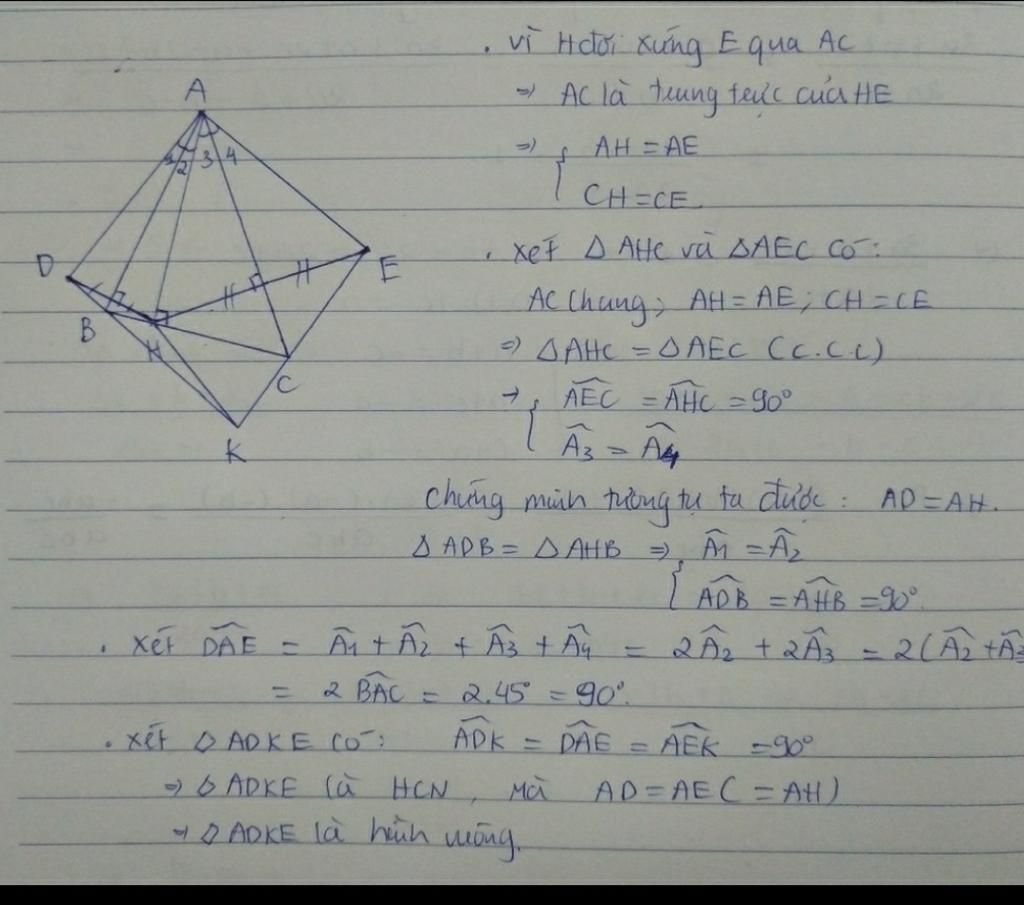 . Vì H đối xứng E qua AC
⇒ AC là trung trực của HE
⇒ { AH = AE
CH = CE
. Xét △ AHC và △AEC có:
AC chung; AH = AE; CH = CE
⇒ △AHC = △AEC (c.c.c)
→ { \widehat{AEC} = \widehat{AHC} = 90°
\widehat{A}3 = \widehat{A}4
Chứng minh tương tự ta được: AD = AH.
△ADB = △AHB ⇒ { \widehat{A}1 = \widehat{A}2
\widehat{ADB} = \widehat{AHB} = 90°.
. Xét \widehat{DAE} = \widehat{A}1 + \widehat{A}2 + \widehat{A}3 + \widehat{A}4 = 2\widehat{A}2 + 2\widehat{A}3 = 2(\widehat{A}2 + \widehat{A}3
= 2 \widehat{BAC} = 2.45° = 90°.
. Xét ◇ADKE có: \widehat{ADK} = \widehat{DAE} = \widehat{AEK} = 90°
⇒ ◇ADKE là HCN, mà AD = AE (= AH)
→ ◇ADKE là hình vuông.
A
1 2 3 4
D
E
B
H
C
K